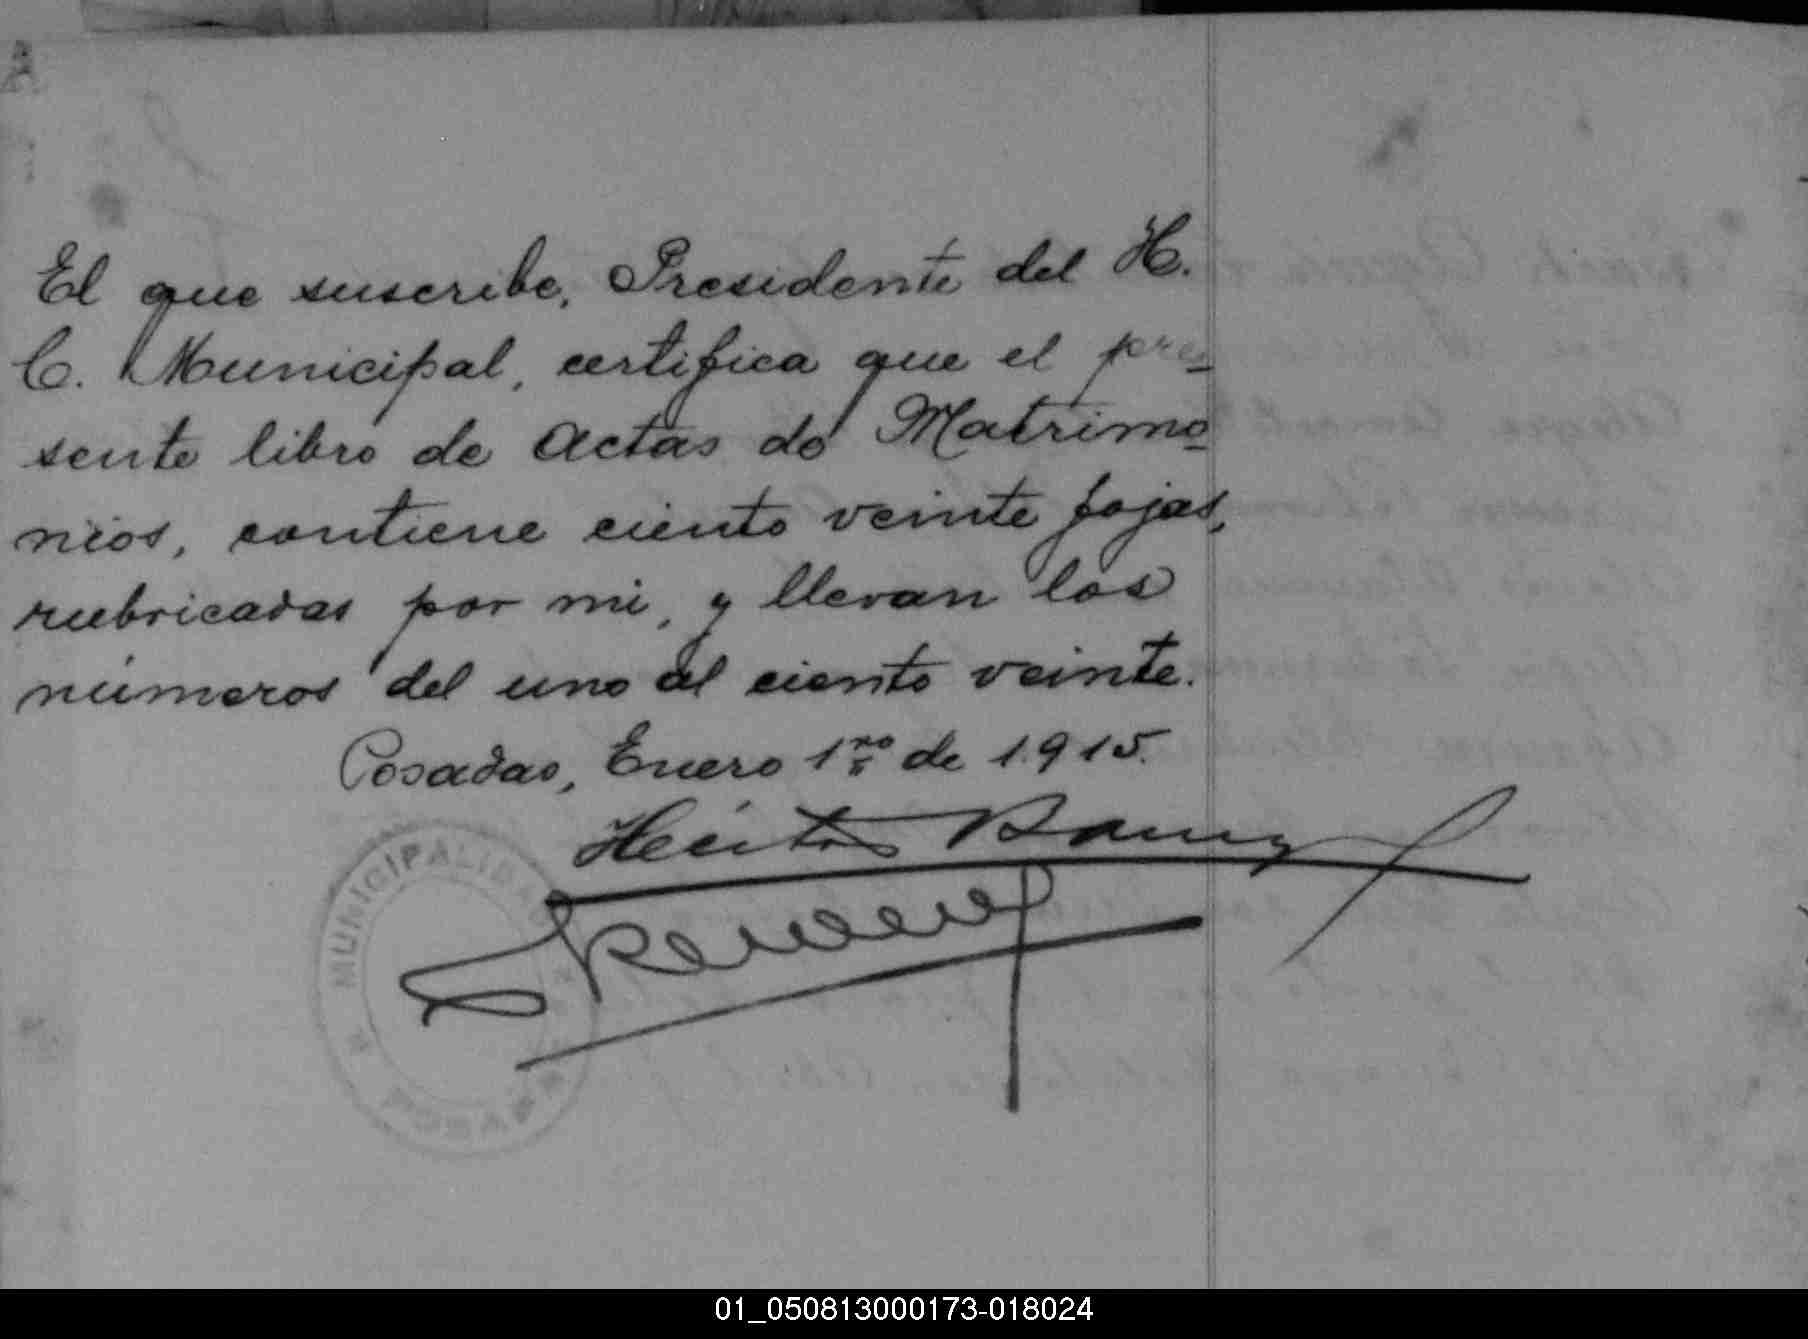 El que suscribe, Presidente del H.
C. Municipal, certifica que el pre-
sente libro de Actas de Matrimo-
nios, contiene ciento veinte fojas,
rubricadas por mi, y llevan los
números del uno al ciento veinte.
Posadas, Enero 1ro de 1915.
Héctor
MUNICIPALIDAD
POSADAS
01_050813000173-018024